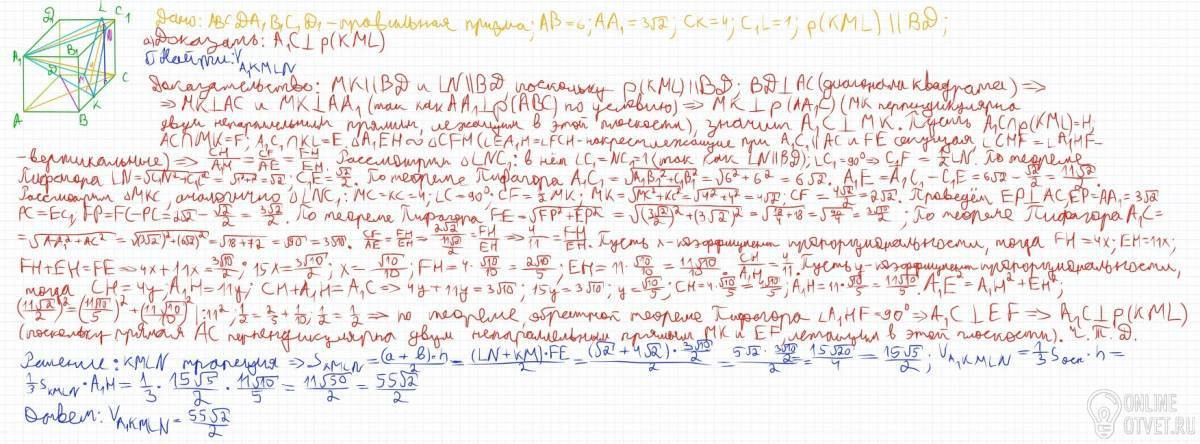 Дано: ABCDA₁B₁C₁D₁ - правильная призма; AB=6; AA₁=3√2; CK=4; C₁L=1; p(KML) || BD;
а) Доказать: A₁C⊥p(KML)
б) Найти: V A₁KMLN
Доказательство: MK||BD и LN||BD поскольку p(KML)||BD; BD⊥AC (диагонали квадрата) ⇒
⇒ MK⊥AC и MK⊥AA₁ (так как AA₁⊥p(ABC) по условию) ⇒ MK⊥p(AA₁C) (MK перпендикулярна
двум непараллельным прямым, лежащим в этой плоскости), значит A₁C⊥MK. Пусть A₁C∩p(KML)=H,
AC∩MK=F; A₁C₁∩KL=E, △A₁EH∾△CFM (∠EA₁H=∠FCH - накрест лежащие при A₁C₁||AC и FE секущая ∠CHF=∠A₁HF-
-вертикальные) ⇒ CH/A₁H = CF/AE = FH/EH. Рассмотрим △LNC₁: в нём LC₁=NC₁=1 (так как LN||BD); ∠C₁=90° ⇒ C₁F=1/2 LN. По теореме
Пифагора LN=√(C₁N²+C₁L²)=√(1²+1²)=√2; C₁E=√2/2. По теореме Пифагора A₁C₁=√(A₁B₁²+C₁B₁²)=√(6²+6²)=6√2. A₁E=A₁C₁-C₁E=6√2-√2/2=11√2/2.
Рассмотрим △MKC, аналогично △LNC₁: MC=KC=4; ∠C=90°; CF=1/2 MK; MK=√(MC²+KC²)=√(4²+4²)=4√2; CF=4√2/2=2√2. Проведём EP⊥AC, EP=AA₁=3√2
PC=EC₁, FP=FC-PC=2√2-√2/2=3√2/2. По теореме Пифагора FE=√(FP²+EP²)=√((3√2/2)²+(3√2)²)=√(18/4+18)=√(90/4)=3√10/2; По теореме Пифагора A₁C=
=√(AA₁²+AC²)=√((3√2)²+(6√2)²)=√(18+72)=√90=3√10. CF/AE=FH/EH=2√2/(11√2/2)=FH/EH ⇒ 4/11=FH/EH. Пусть x-коэффициент пропорциональности, тогда FH=4x; EH=11x;
FH+EH=FE ⇒ 4x+11x=3√10/2; 15x=3√10/2; x=√10/10; FH=4·√10/10=2√10/5; EH=11·√10/10=11√10/10. CH/A₁H=4/11. Пусть y-коэффициент пропорциональности,
тогда CH=4y; A₁H=11y; CH+A₁H=A₁C ⇒ 4y+11y=3√10; 15y=3√10; y=√10/5; CH=4·√10/5=4√10/5; A₁H=11·√10/5=11√10/5. A₁E²=A₁H²+EH²;
(11√2/2)²=(11√10/5)²+(11√10/10)² |:11²; 1/2=2/5+1/10; 1/2=1/2 ⇒ по теореме, обратной теореме Пифагора ∠A₁HF=90° ⇒ A₁C⊥EF ⇒ A₁C⊥p(KML)
(поскольку прямая AC перпендикулярна двум непараллельным прямым MK и EF, лежащим в этой плоскости). Ч. т. д.
Решение: KMLN трапеция ⇒ S KMLN=(a+b)·h/2=(LN+KM)·FE/2=(√2+4√2)·3√10/2 /2=5√2·3√10/2 /2=15√20/4=15√5/2; V A₁KMLN=1/3 Sосн·h=
1/3 S KMLN·A₁H=1/3·15√5/2·11√10/5=11√50/2=55√2/2
Ответ: V A₁KMLN=55√2/2
ONLINE
OTVET.RU